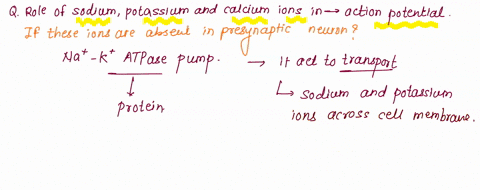 Q. Role of sodium, potassium and calcium ions in → action potential.
If these ions are absent in presynaptic neuron?
Na⁺-K⁺ ATPase pump. → It act to transport
↓
protein
↳ sodium and potassium
ions across cell membrane.